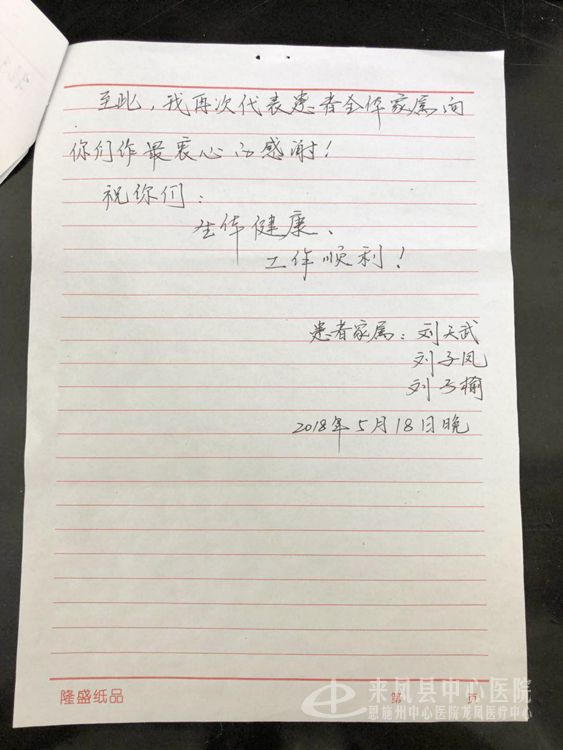 至此，我再次代表患者全体家属向
你们作最衷心的感谢！
祝你们：
全体健康、
工作顺利！
患者家属：刘天武
刘子凤
刘子榆
2018年5月18日晚
隆盛纸品
第 页
来凤县中心医院
恩施州中心医院龙凤医疗中心